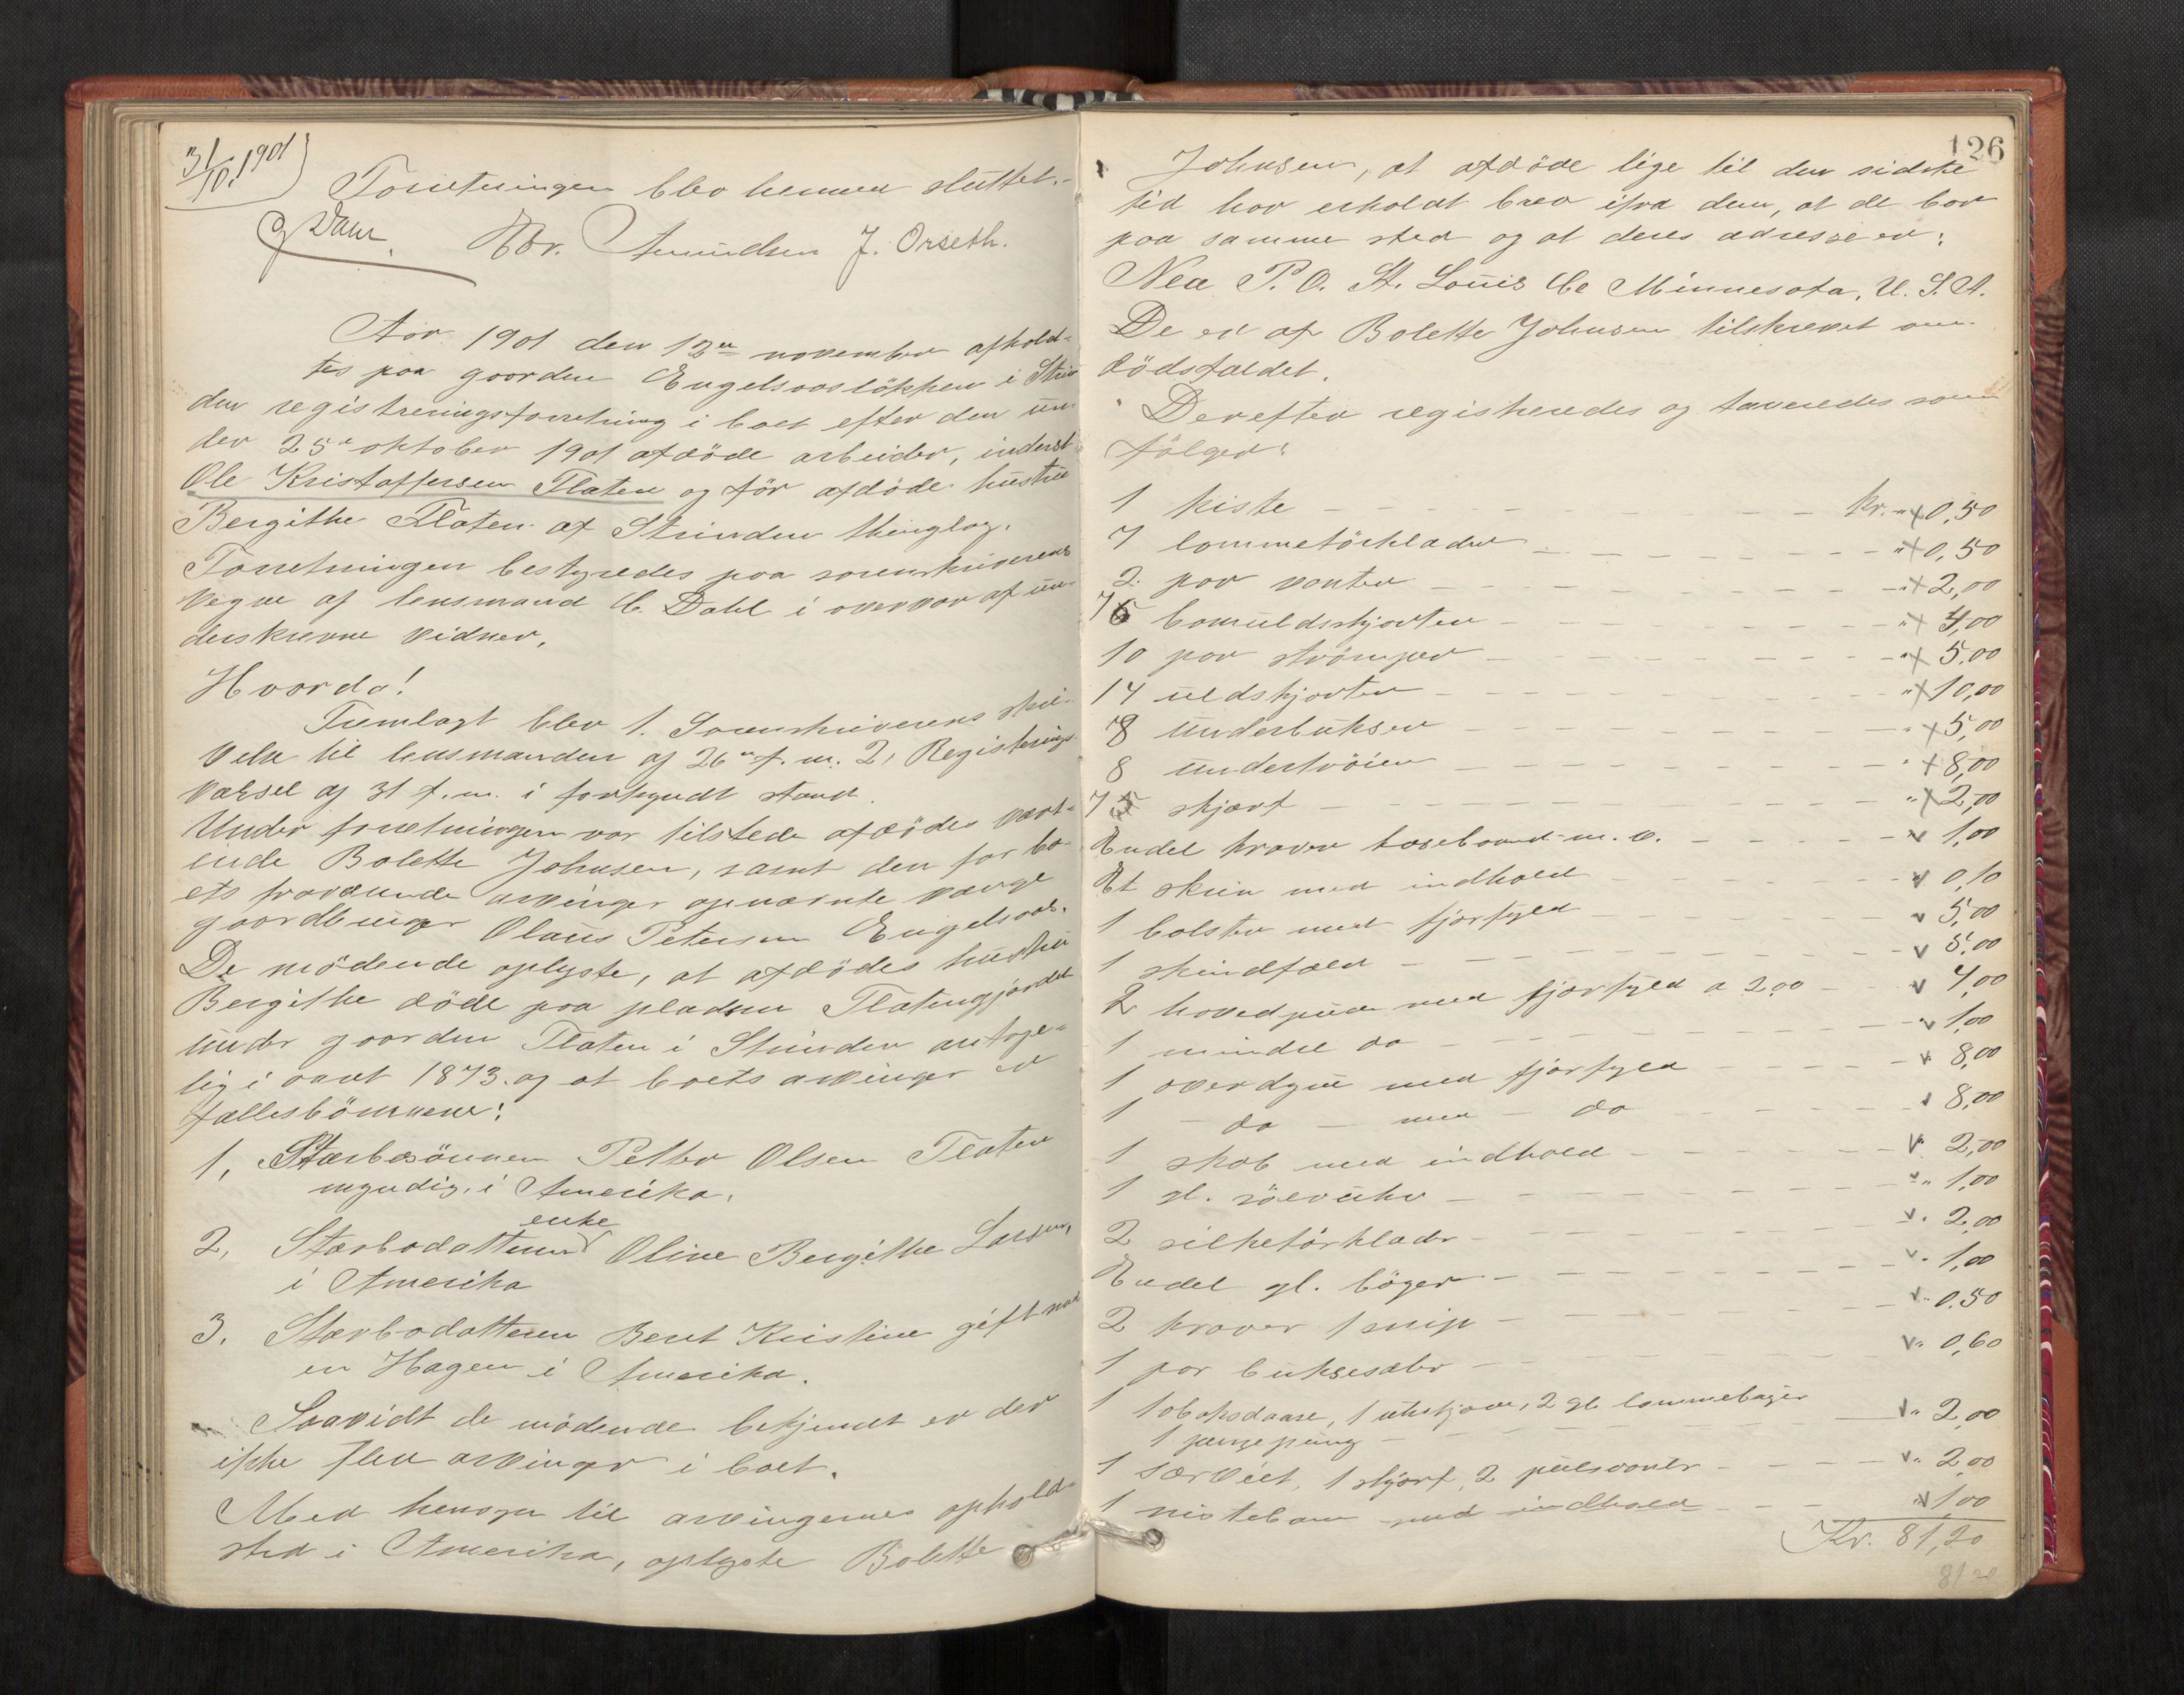 31/10 1901
Forretningen blev hermed sluttet.-
C Dahl. Chr. Amundsen J. Orseth.
Aar 1901 den 13de november afhold-
tes paa gaarden Engelsaasløkken i Strin
den registreringsforretning i boet efter den un-
der 25de oktober 1901 afdøde arbeider, inderst
Ole Kristoffersen Flaten og før afdøde hustru
Bergithe Flaten af Strinden thinglag.
Forretningen bestyredes paa sorenskriverens
vegne af lensmand C. Dahl i overvær af un-
derskrevne vidner.
Hvorda!
Fremlagt blev 1. Sorenskriverens skri-
velse til lensmanden af 26de f. m. 2, Registrerings-
varsel af 31 f. m. i forkyndt stand.
Under forretningen var tilstede afdødes vært-
inde Bolette Johnsen, samt den for bo-
ets fraværende arvinger opnævnte værge
gaardbruger Olaus Petersen Engelsaas.
De mødende oplyste, at afdødes hustru
Bergithe døde paa pladsen Flatengjærdet
under gaarden Flaten i Strinden antage-
lig i aaret 1873. og at boets arvinger er
fællesbørnene:
1, Stærbosønnen Petter Olsen Flaten
myndig, i Amerika.
2, Stærbodatteren enke Oline Bergithe Larsen,
i Amerika
3. Stærbodatteren Berit Kristine gift med
en Hagen i Amerika.
Saavidt de mødende bekjendt er der
ikke flere arvinger i boet.
Med hensyn til arvingernes ophold-
sted i Amerika, oplyste Bolette
126
Johnsen, at afdøde lige til den sidste
tid har erholdt brev ifra dem, at de bor
paa samme sted og at deres adresse er:
Nea P. O. St. Louis Co Minnesota, U. S. A.
De er af Bolette Johnsen tilskrevet om
dødsfaldet.
Derefter registreredes og taxeredes som
følger:
1 kiste kr. " 0,50
7 lommetørklæder " 0,50
2 par vanter " 2,00
7 bomuldsskjorter " 4,00
10 par strømper " 5,00
14 uldskjorter " 10,00
8 underbukser " 5,00
8 undertrøier " 8,00
7 skjærf " 2,00
Endel kraver hosebaand m. v. " 1,00
Et skrin med indhold " 0,10
1 bolster med fjærfyld 5,00
1 skindfæld 5,00
2 hovedpuder med fjærfyld a 2,00 4,00
1 mindre do 1,00
1 overdyne med fjærfyld 8,00
1 - do - med - do 8,00
1 skab med indhold 2,00
1 gl. sølvuhr " 1,00
2 silketørklæder " 2,00
Endel gl. bøger " 1,00
2 kraver 1 snip " 0.50
1 par buksesæler " 0,60
1 tobaksdaase, 1 uhrkjæde, 2 gl lommebøger
1 pengepung " 2,00
1 serviet, 1 skjærf, 2 pulsvanter " 2,00
1 nistebom med indhold " 1,00
Kr. 81,20
81 20